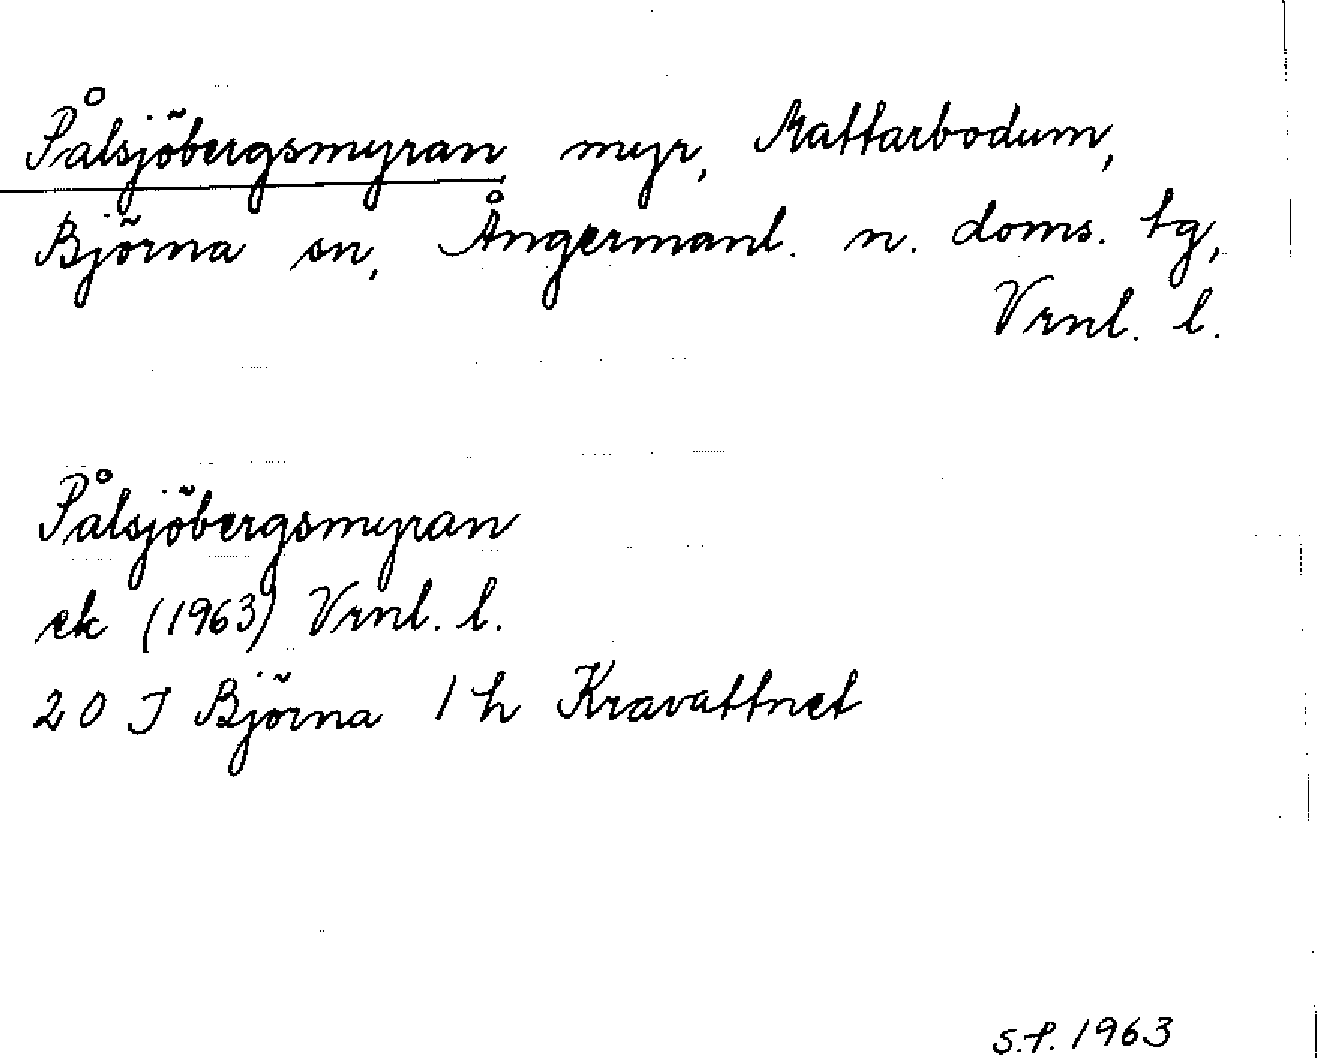 Pålsjöbergsmyran myr, Mattarbodum,
Björna sn, Ångermanl. n. doms. tg,
Vrnl. l.
Pålsjöbergsmyran
ek (1963) Vrnl. l.
20 J Björna 1 h Kravattnet
s.f. 1963